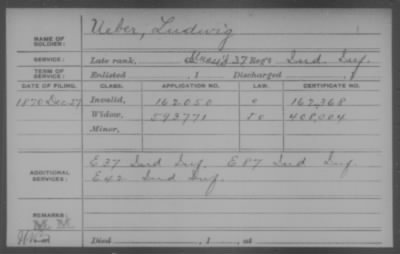 NAME OF SOLDIER: Ueber, Ludwig
SERVICE: Late rank, 37 Reg't Ind Inf.
TERM OF SERVICE: Enlisted , 1 Discharged , 1
DATE OF FILING. CLASS. APPLICATION NO. LAW. CERTIFICATE NO.
1870 Dec 27 Invalid, 162050 162,368
Widow, 593771 408,004
Minor,
ADDITIONAL SERVICES: E 37 Ind Inf. E 87 Ind Inf.
E 42 Ind Inf.
REMARKS:
Died , 1 , at